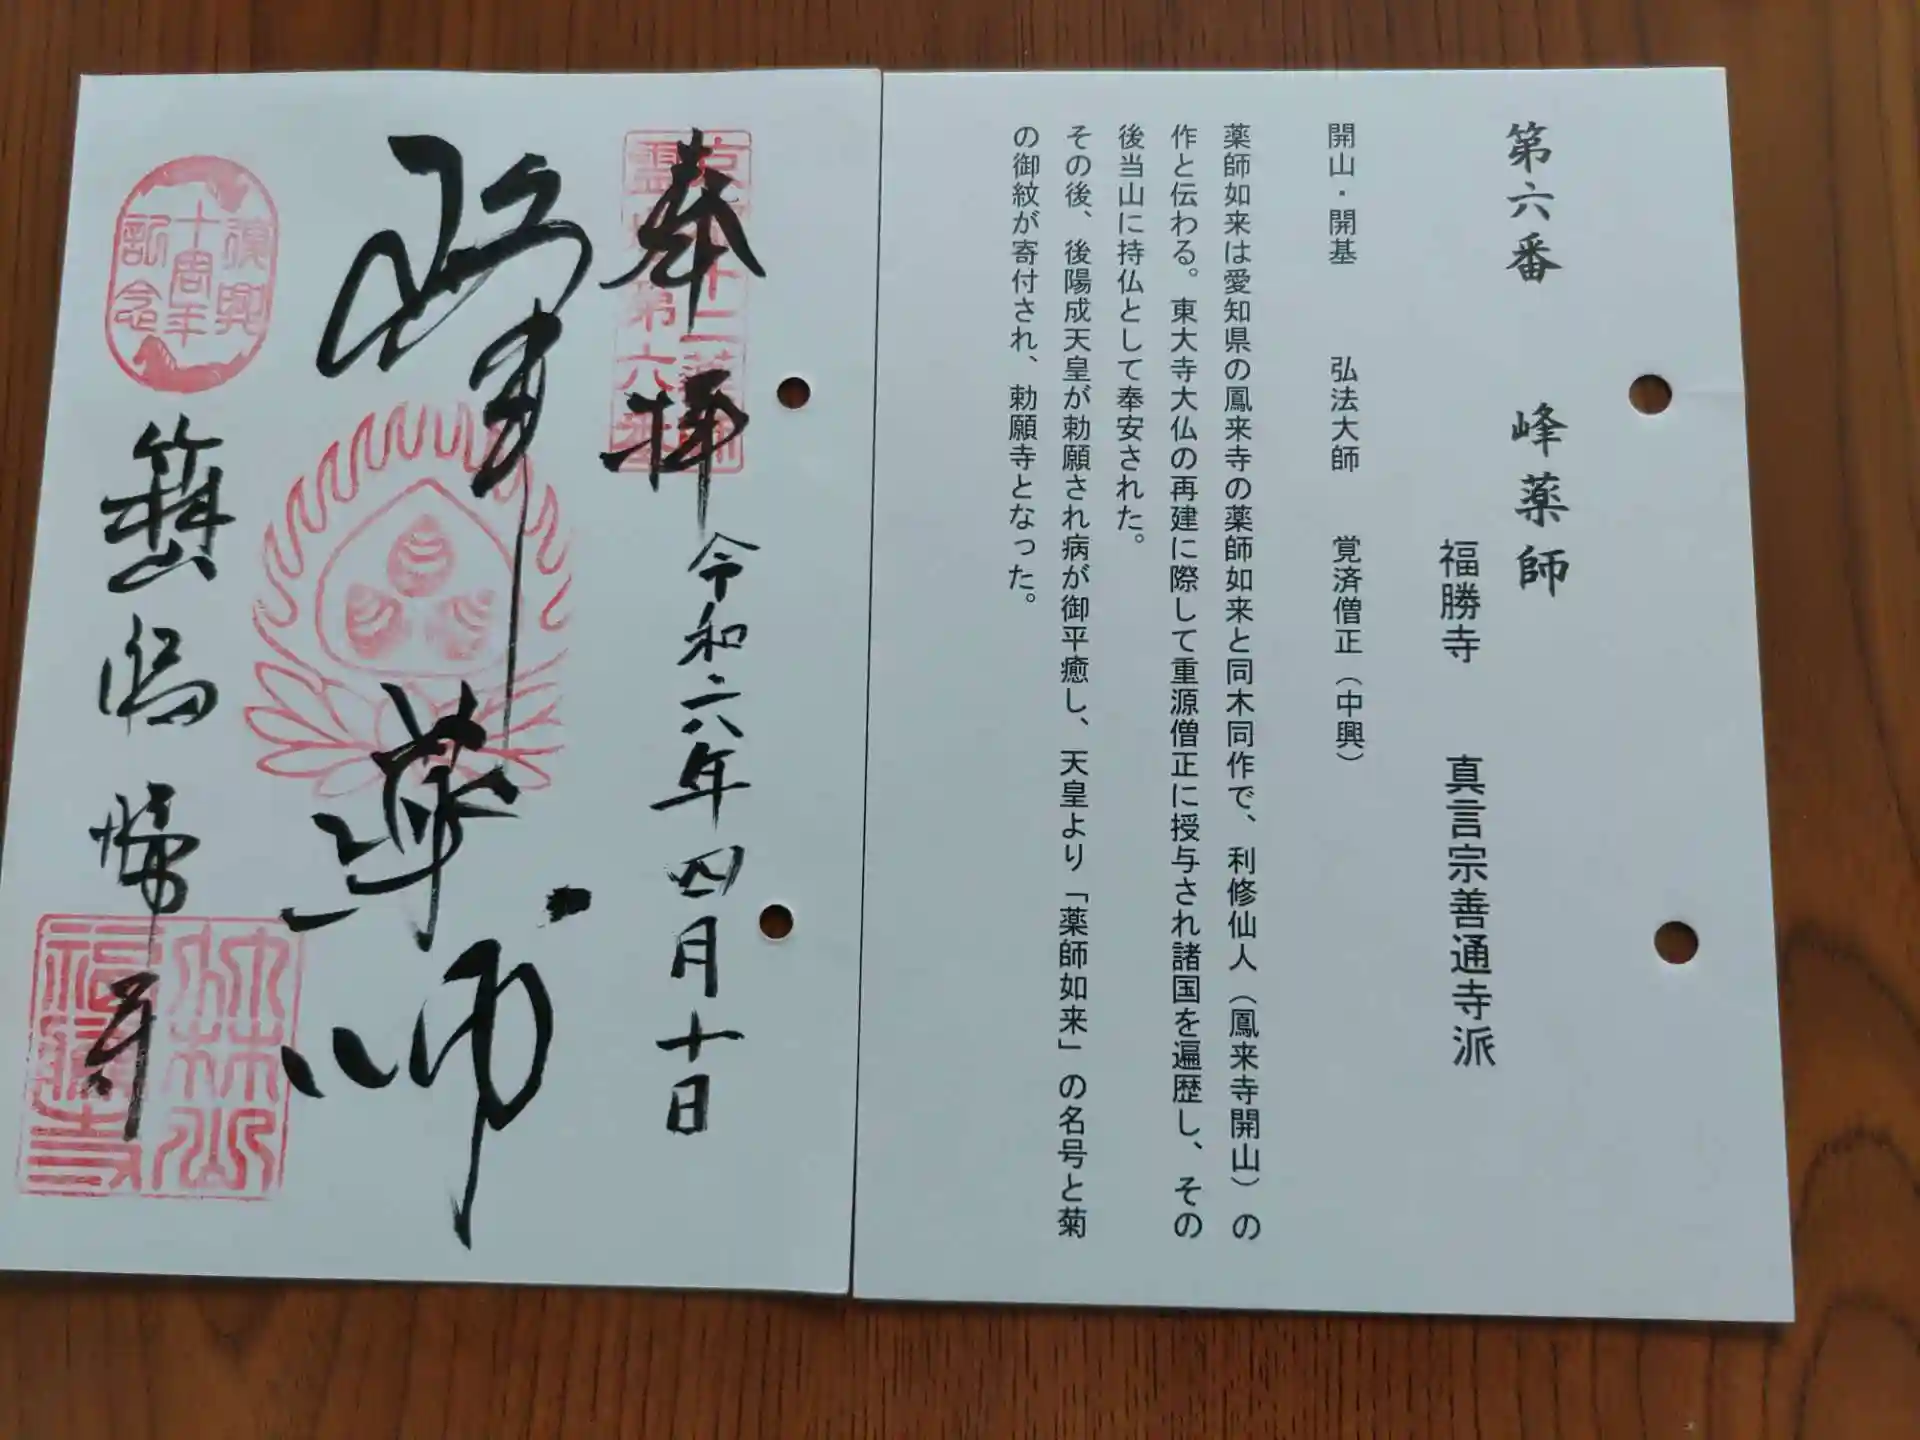 第六番 峰薬師
福勝寺 真言宗善通寺派
開山・開基 弘法大師 覚済僧正（中興）
薬師如来は愛知県の鳳来寺の薬師如来と同木同作で、利修仙人（鳳来寺開山）の
作と伝わる。東大寺大仏の再建に際して重源僧正に授与され諸国を遍歴し、その
後当山に持仏として奉安された。
その後、後陽成天皇が勅願され病が御平癒し、天皇より「薬師如来」の名号と菊
の御紋が寄付され、勅願寺となった。
奉拝
令和六年四月十日
京都十二薬師
霊場第六番
峰薬師
復興
十周年
記念
竹林山
福勝寺